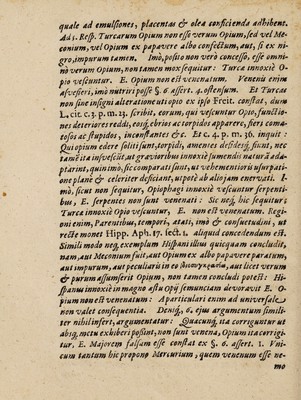 quale ad emulsiones, placentas & olea conficienda adhibent.
Ad 1. Resp. Turcarum Opium non esse verum Opium, sed vel Me-
conium, vel Opium ex papavere albo confectum, aut, si ex ni-
gro, impurum tamen. Imò, posito non verò concesso, esse omni-
nò verum Opium, non tamen mox sequitur: Turcæ innoxiè O-
pio vescuntur. E. Opium non est venenatum. Venenis enim
assvesieri, imò nutriri posse §. 6. assert. 4. ostensum. Et Turcas
non sine insigni alteratione uti opio ex ipso Freit. constat, dum
L. cit. c. 3. p. m. 23. scribit, eorum, qui vescuntur Opio, functio-
nes deteriores reddi, eosq́, ebrios ac torpidos apparere, fieri coma-
tosos ac stupidos, inconstantes &c. Et c. 4. p. m. 36. inquit:
Qui opium edere soliti sunt, torpidi, amentes desidesq́, sicut, nec
tam è ita insvescũt, ut gravioribus innoxiè sumendi naturã adap-
tarint, quin imò, sic comparati sint, ut vehementioris usurpati-
one planè & celeriter deficiant, utpotè ab alio jam enervati. I-
mò, sicut non sequitur, Opiophagi innoxiè vescuntur serpenti-
bus, E. serpentes non sunt venenati: Sic neq́, hic sequitur;
Turcæ innoxiè Opio vescuntur, E. non est venenatum. Regi-
oni enim, Parentibus, tempori, ætati, imò & consuetudini, ut
rectè monet Hipp. Aph. 17. sect. 1. aliquid concedendum est.
Simili modo neq́, exemplum Hispani illius quicquam concludit,
nam, aut Meconium fuit, aut Opium ex albo papavere paratum,
aut impurum, aut peculiaris in eo ἰδιοσυγκρασία, aut licet verum
& purum assumserit Opium, non tamen concludi potest: Hi-
spanus innoxiè in magno æstu Opij semunciam devoravit E. O-
pium non est venenatum: A particulari enim ad universale
non valet consequentia. Deniq́, 6. ejus argumentum simili-
ter nihil infert, argumentatur: Quacunq́, ita corriguntur ut
absq́, metu exhiberi possint, non sunt venena, Opium ita corrigi-
tur, E. Majorem falsam esse constat ex §. 6. assert. 1. Vni-
cum tantum hic propono Mercurium, quem venenum esse ne-
mo